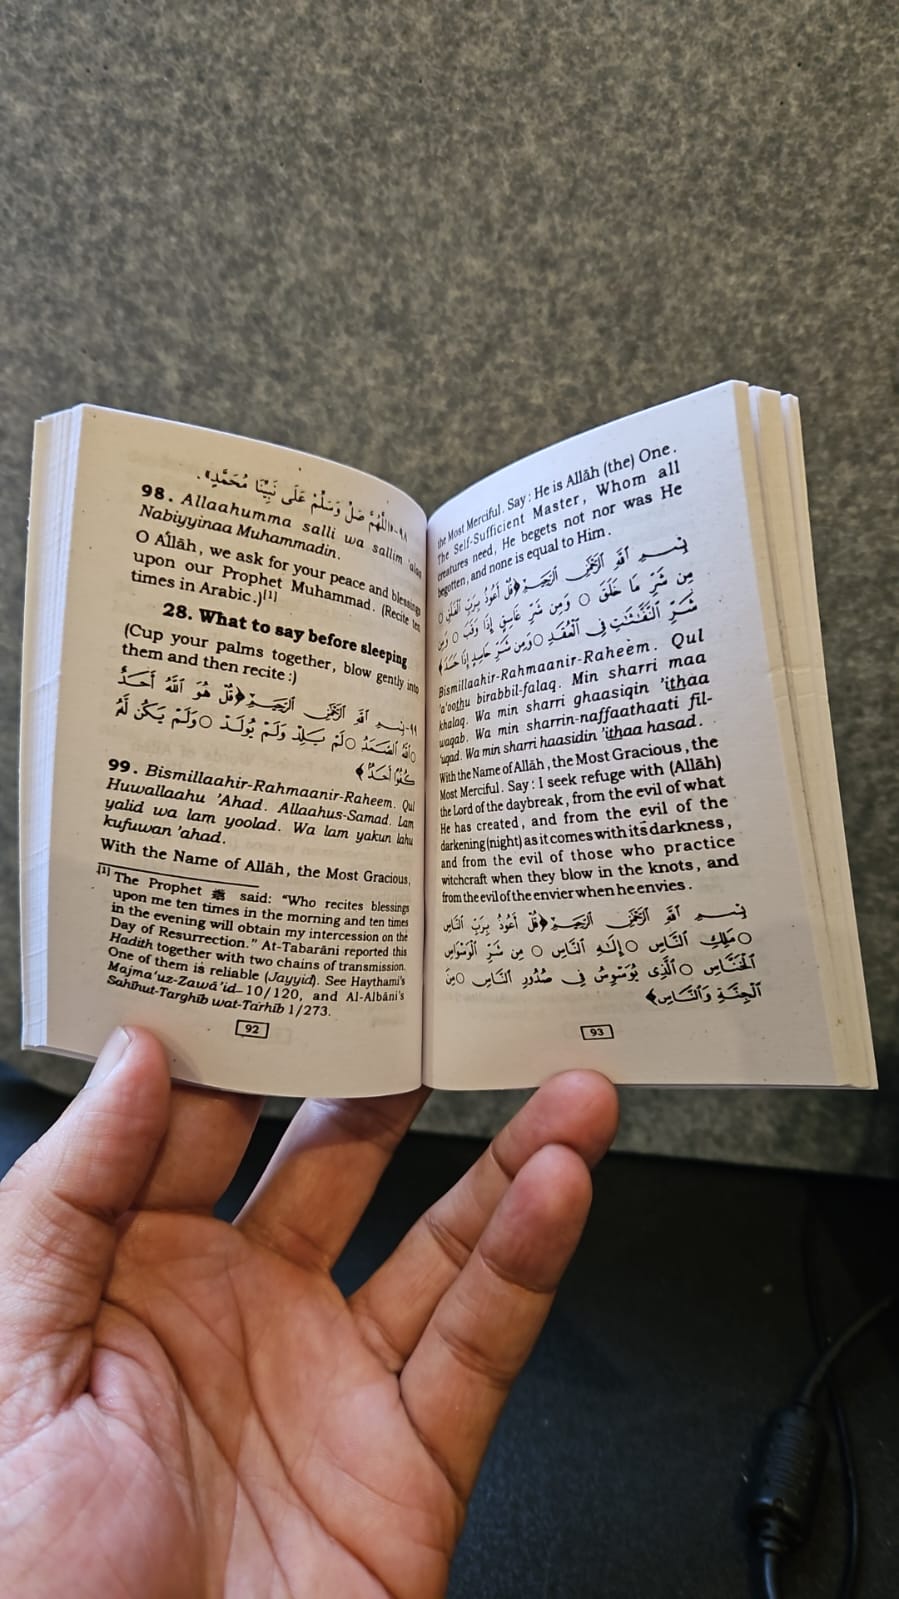 ٩٨- «اللَّهُمَّ صَلِّ وَسَلِّمْ عَلَى نَبِيِّنَا مُحَمَّدٍ».
98. Allaahumma salli wa sallim 'alaa
Nabiyyinaa Muhammadin.
O Allāh, we ask for your peace and blessings
upon our Prophet Muhammad. (Recite ten
times in Arabic.)[1]
28. What to say before sleeping
(Cup your palms together, blow gently into
them and then recite :)
٩٩- بِسْمِ اللَّهِ الرَّحْمَٰنِ الرَّحِيمِ ﴿قُلْ هُوَ اللَّهُ أَحَدٌ
○ اللَّهُ الصَّمَدُ ○ لَمْ يَلِدْ وَلَمْ يُولَدْ ○ وَلَمْ يَكُن لَّهُ
كُفُوًا أَحَدٌ﴾
99. Bismillaahir-Rahmaanir-Raheem. Qul
Huwallaahu 'Ahad. Allaahus-Samad. Lam
yalid wa lam yoolad. Wa lam yakun lahu
kufuwan 'ahad.
With the Name of Allāh, the Most Gracious,
[1] The Prophet ﷺ said: "Who recites blessings
upon me ten times in the morning and ten times
in the evening will obtain my intercession on the
Day of Resurrection." At-Tabarāni reported this
Hadith together with two chains of transmission.
One of them is reliable (Jayyid). See Haythami's
Majma'uz-Zawā'id 10/120, and Al-Albāni's
Sahihut-Targhib wat-Tarhib 1/273.
92
the Most Merciful. Say : He is Allāh (the) One.
The Self-Sufficient Master, Whom all
creatures need, He begets not nor was He
begotten, and none is equal to Him.
بِسْمِ اللَّهِ الرَّحْمَٰنِ الرَّحِيمِ ﴿قُلْ أَعُوذُ بِرَبِّ الْفَلَقِ ○
مِن شَرِّ مَا خَلَقَ ○ وَمِن شَرِّ غَاسِقٍ إِذَا وَقَبَ ○ وَمِن
شَرِّ النَّفَّاثَاتِ فِي الْعُقَدِ ○ وَمِن شَرِّ حَاسِدٍ إِذَا حَسَدَ﴾
Bismillaahir-Rahmaanir-Raheem. Qul
'a'oothu birabbil-falaq. Min sharri maa
khalaq. Wa min sharri ghaasiqin 'ithaa
waqab. Wa min sharrin-naffaathaati fil-
'uqad. Wa min sharri haasidin 'ithaa hasad.
With the Name of Allāh , the Most Gracious , the
Most Merciful. Say : I seek refuge with (Allāh)
the Lord of the daybreak , from the evil of what
He has created, and from the evil of the
darkening (night) as it comes with its darkness ,
and from the evil of those who practice
witchcraft when they blow in the knots, and
from the evil of the envier when he envies .
بِسْمِ اللَّهِ الرَّحْمَٰنِ الرَّحِيمِ ﴿قُلْ أَعُوذُ بِرَبِّ النَّاسِ
○ مَلِكِ النَّاسِ ○ إِلَٰهِ النَّاسِ ○ مِن شَرِّ الْوَسْوَاسِ
الْخَنَّاسِ ○ الَّذِي يُوَسْوِسُ فِي صُدُورِ النَّاسِ ○ مِنَ
الْجِنَّةِ وَالنَّاسِ﴾
93